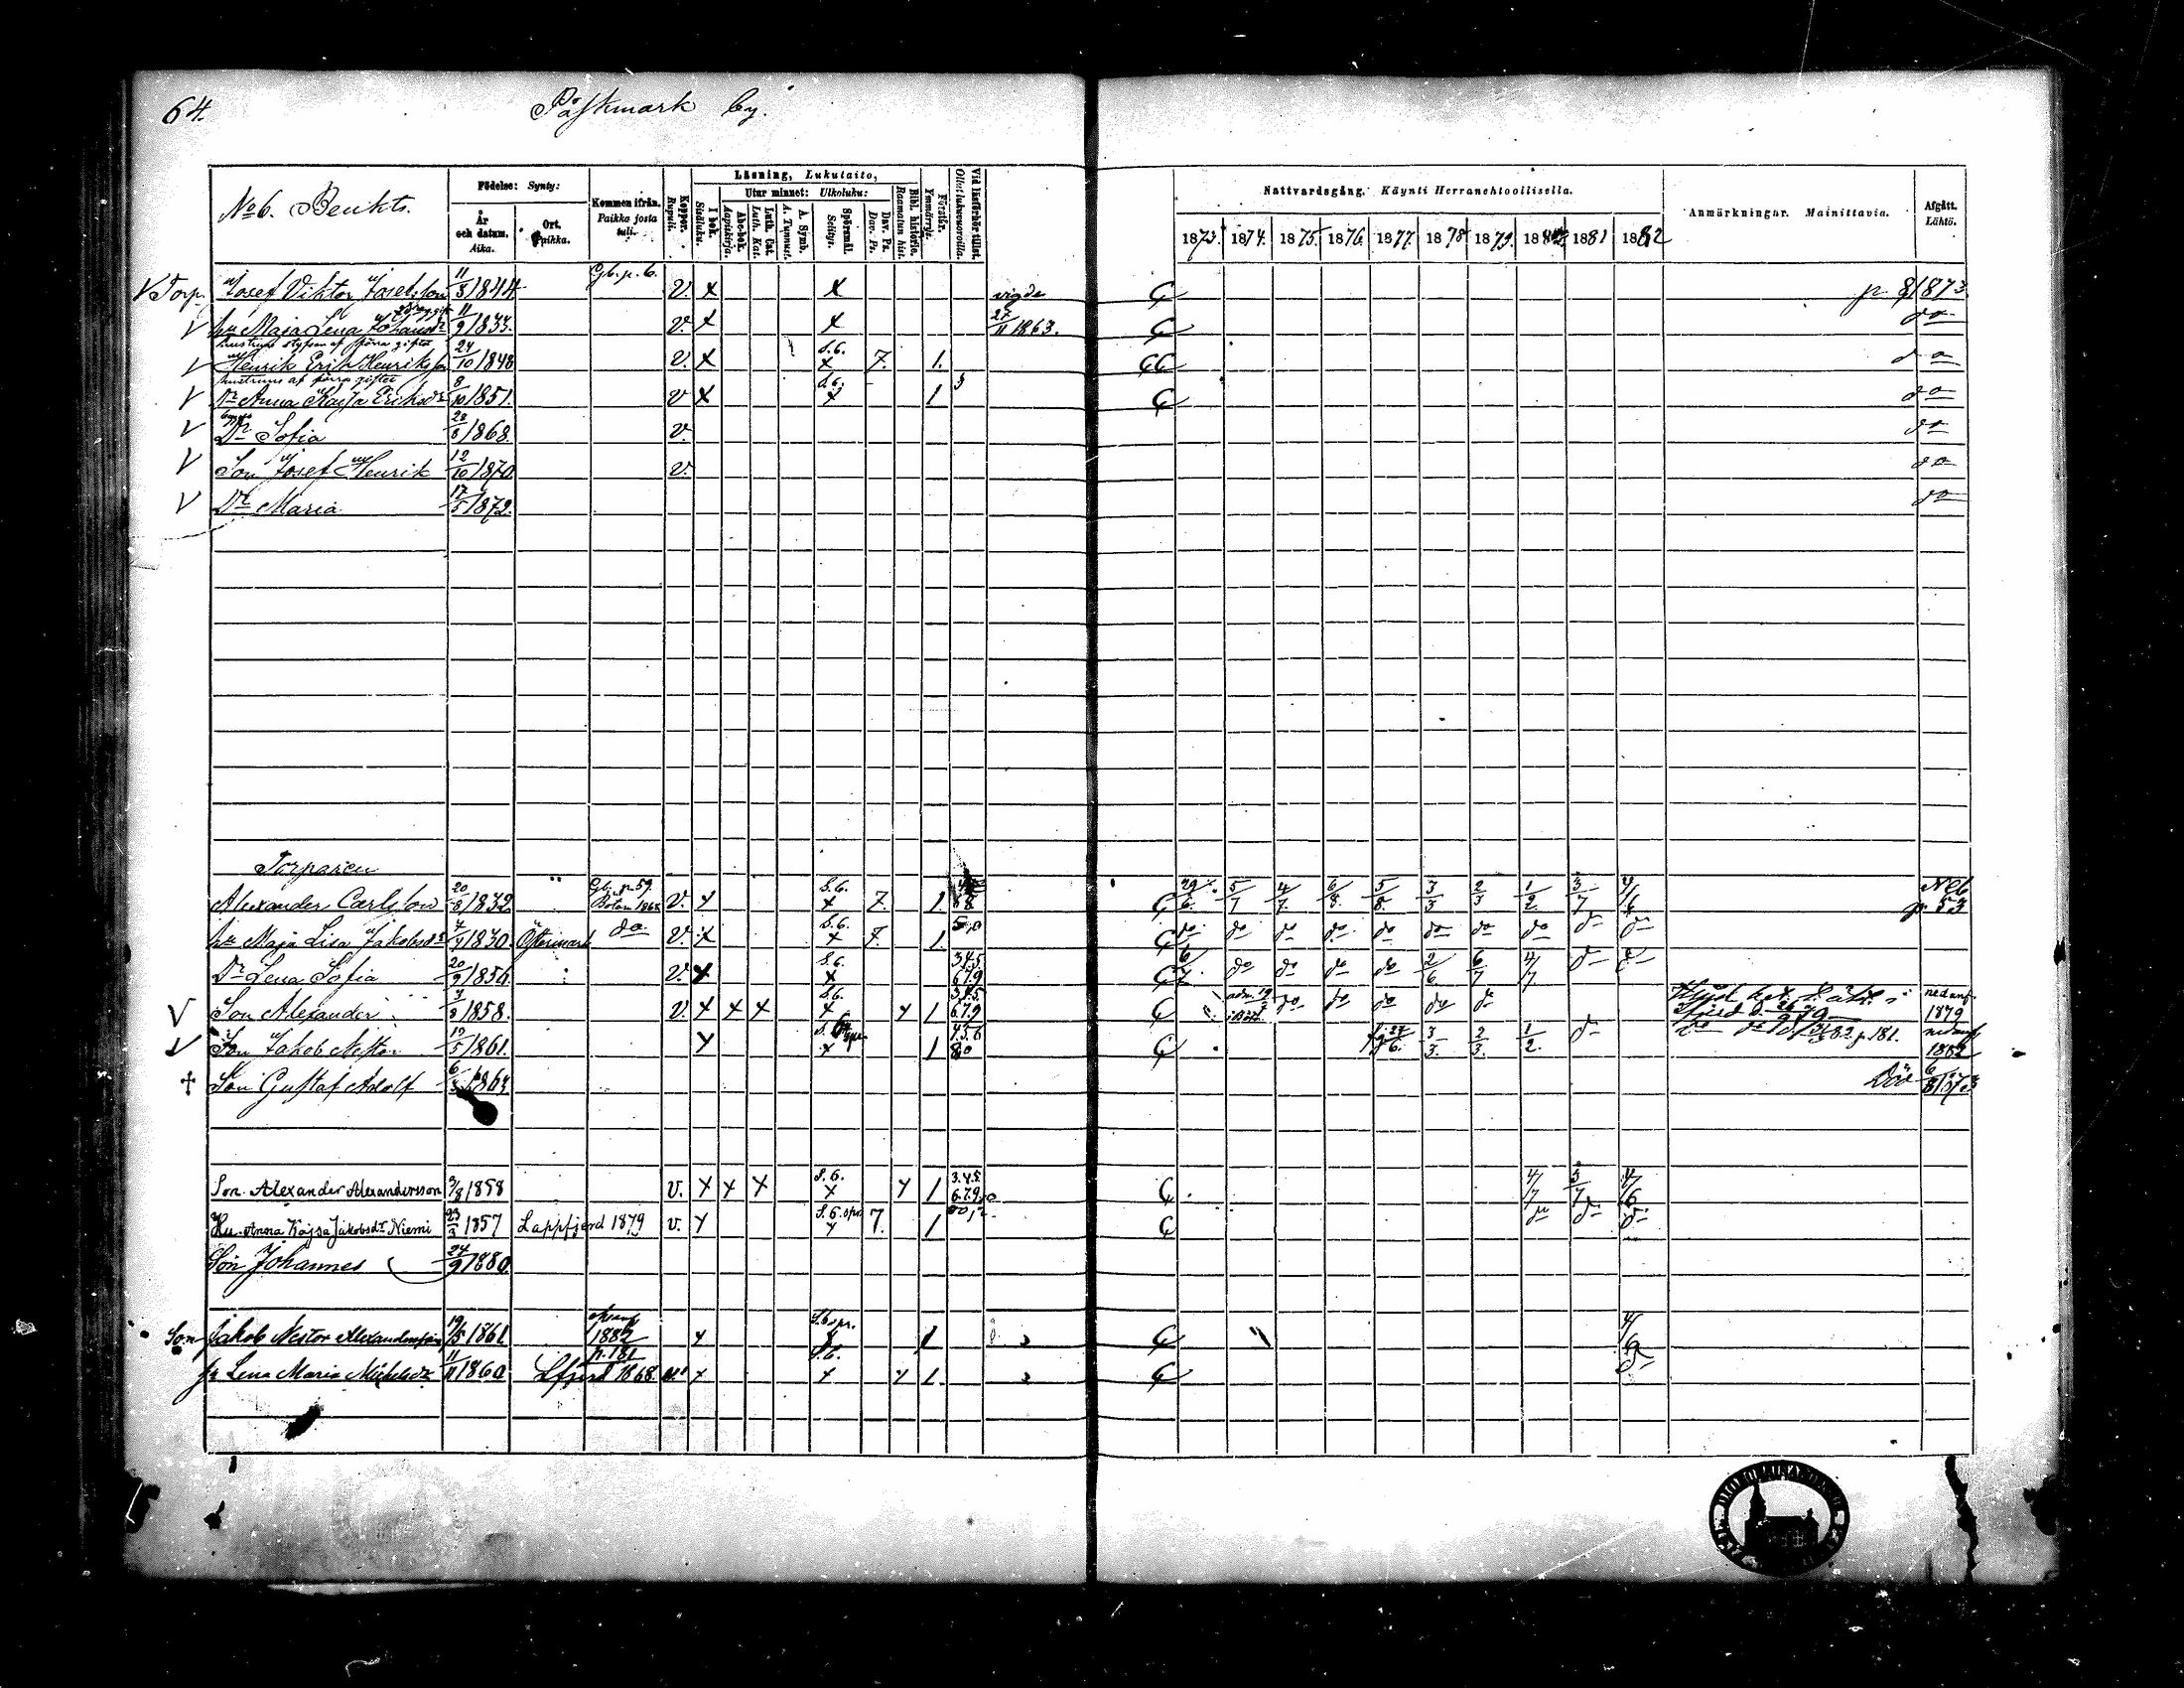 64.
Påskmark by.
No 6. Benkts.
Födelse: Synty:
År och datum. Aika.
Ort. Paikka.
Kommen ifrån. Paikka josta tuli.
Koppor. Rupuli.
Läsning, Lukutaito,
I bok. Sisäluku.
Utur minnet: Ulkoluku:
Abc-bok. Aapiskirja.
Luth. Cat. Luth. Kat.
A. Symb. A. Tunnust.
Spörsmål. Selitys.
Dav. Ps. Dav. Ps.
Bibl. historie. Raamatun hist.
Förstår. Ymmärrys.
Vid läsförhör tillst. Ollut lukuvuoroilla.
Nattvardsgång. Käynti Herranehtoollisella.
1873. 1874. 1875. 1876. 1877. 1878 1879. 1880 1881 1882
Anmärkningar. Mainittavia.
Afgått. Lähtö.
V Torp. Josef Viktor Josefsson 11/3 1844 Gb. p. 6. V. x x vigde p 8/1873
V hu Maja Lena Johansdr 11/9 1833. V. x x 27/11 1863. do
hustruns styfson af förra giftet
V Henrik Erik Henriksson 24/10 1848 V. x S.G. x 7. 1. do
hustruns af förra giftet
V Dr Anna Kajsa Eriksdr 8/10 1851. V x S.G. x 1 do
V Dr Sofia 28/8 1868. V. do
V Son Josef Henrik 12/10 1870 V. do
V Dr Maria 17/5 1872. do
Torparen
Alexander Carlsson 20/8 1832 Gb. p. 59. Bötom 1865 V. x S.G. x 7. 1. 5/7 4/7 6/8 5/8 3/3 2/3 1/2 3/7 4/6 p. 53
hu Maja Lisa Jakobsdr 4/4 1830. Östermark do V. x S.G. x 7. 1. do do do do do do do do do do
Dr Lena Sofia 20/9 1856. V. x S.G. x 3.4.5. 6.7.9 do do do do 2/6 6/7 4/7 do do
V Son Alexander 3/8 1858. V. x x x S.G. x x 1 3.4.5. 6.7.9 adm. 19 do do do do do nedanf. 1879
V Son Jakob Nestor 19/5 1861. x S.G. x 1 3/3. 2/3. 1/2. do p. 181. nedanf 1882
+ Son Gustaf Adolf 1863. Död 6/3 1873
Son Alexander Alexandersson 3/8 1858 V. x x x S.G. x x 1 3.4.5. 6.7.9. 4/7 3/7 4/6
Hu. Anna Kajsa Jakobsdr Niemi 23/3 1857 Lappfjerd 1879 v. x S.G. x 7. 1 do do do
Son Johannes 24/9 1880.
Son Jakob Nestor Alexandersson 19/5 1861 1882 x 1 4/6
hu Lena Maria Mickelsdr 11/11 1860 p. 181 Lfjerd 1868 x S.G. x x 1. do